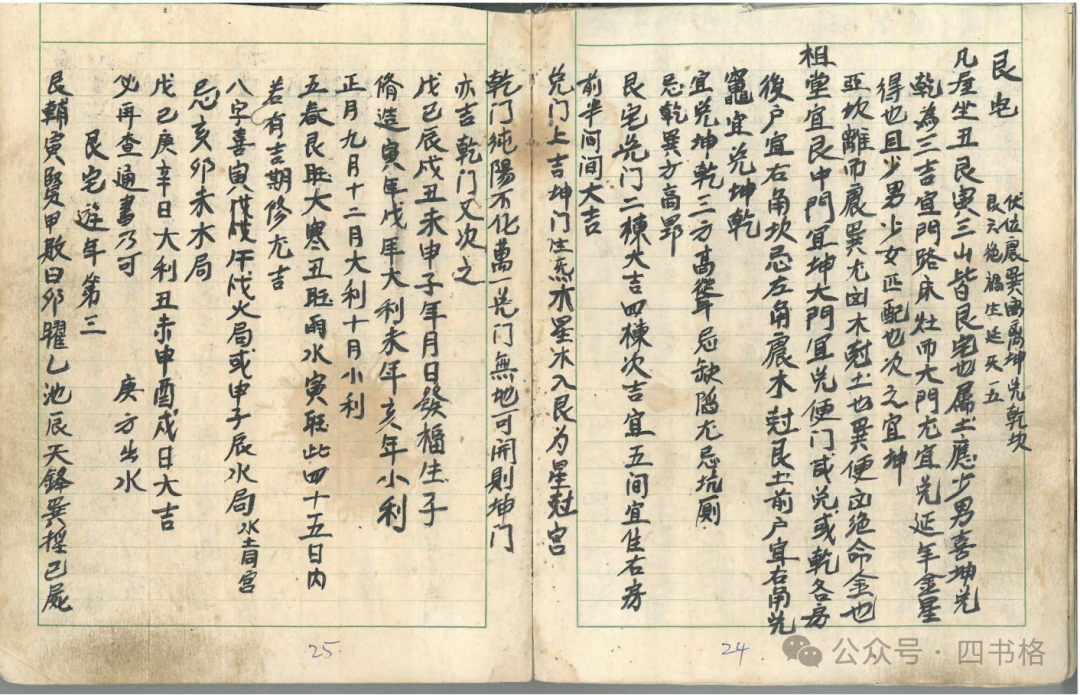 艮宅
伏位震巽离坤兑乾坎
艮六绝祸生延天五
凡屋坐丑艮寅三山皆艮宅也属土應少男喜坤兑
乾為三吉宜門路床灶而大門尤宜兑延年金星
得也且少男少女匹配也次之宜坤
亚坎離而震巽尤凶木尅土也巽便凶绝命金也
祖堂宜艮中門宜坤大門宜兑便门或兑或乾各房
後户宜右角坎忌左角震木尅艮土前户宜右角兑
竈宜兑坤乾
宜兑坤乾三方高聳忌缺陷尤忌坑厕
忌乾巽方高昂
艮宅兑门二棟大吉四棟次吉宜五间宜住右房
前半间间大吉
兑门上吉坤门生炁木星木入艮为星尅宫
乾门纯陽不化萬一兑门無地可開則坤门
亦吉乾门又次之
戊己辰戌丑未申子年月日發福生子
脩造寅年戊年大利未年亥年小利
正月九月十二月大利十月小利
五春艮旺大寒丑旺雨水寅旺此四十五日内
若有吉期修尤吉
八字喜寅午戌火局或申子辰水局
忌亥卯未木局
戊己庚辛日大利丑未申酉戌日大吉
必再查通書乃可 庚方出水
艮宅遊年第三
艮輔寅賢甲敗曰卯曜乙池辰天鋒巽挃己屍
25.
24
公众号·四书格